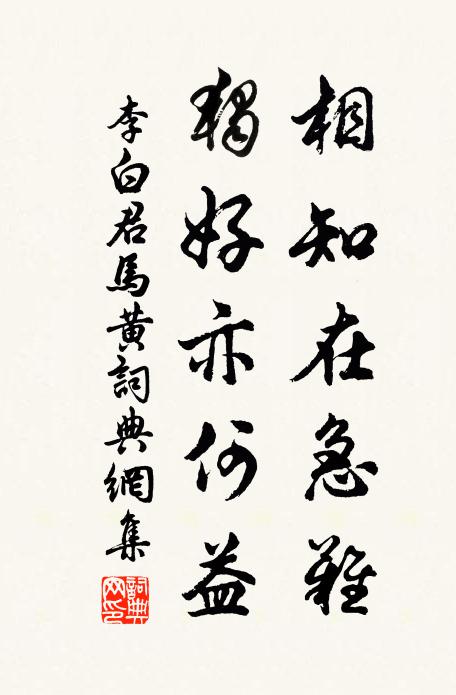 相知在急難
獨好亦何益
李白君馬黄詞典網集
詞典网印